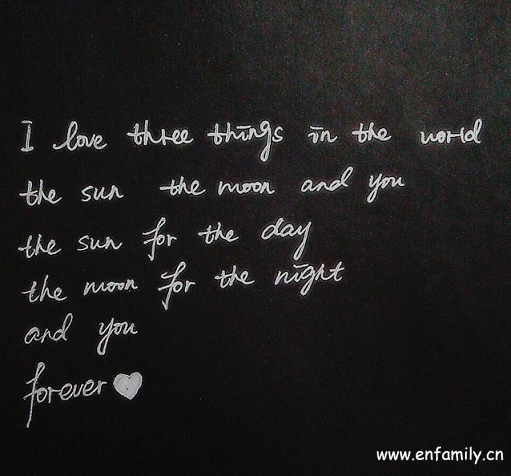 I love three things in the world
the sun the moon and you
the sun for the day
the moon for the night
and you
forever ♥
www.enfamily.cn